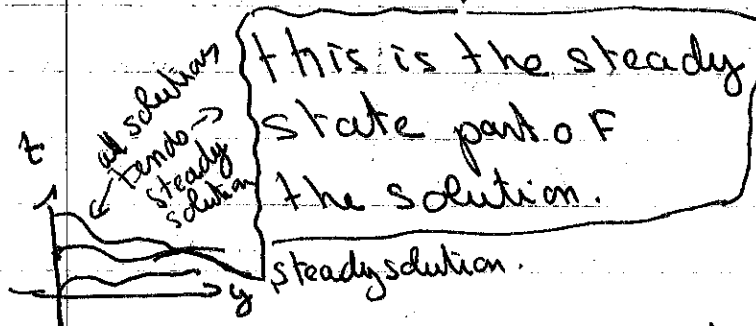 this is the steady
state part of
the solution.
all solutions
tends →
steady
solution
z
y
steady solution.